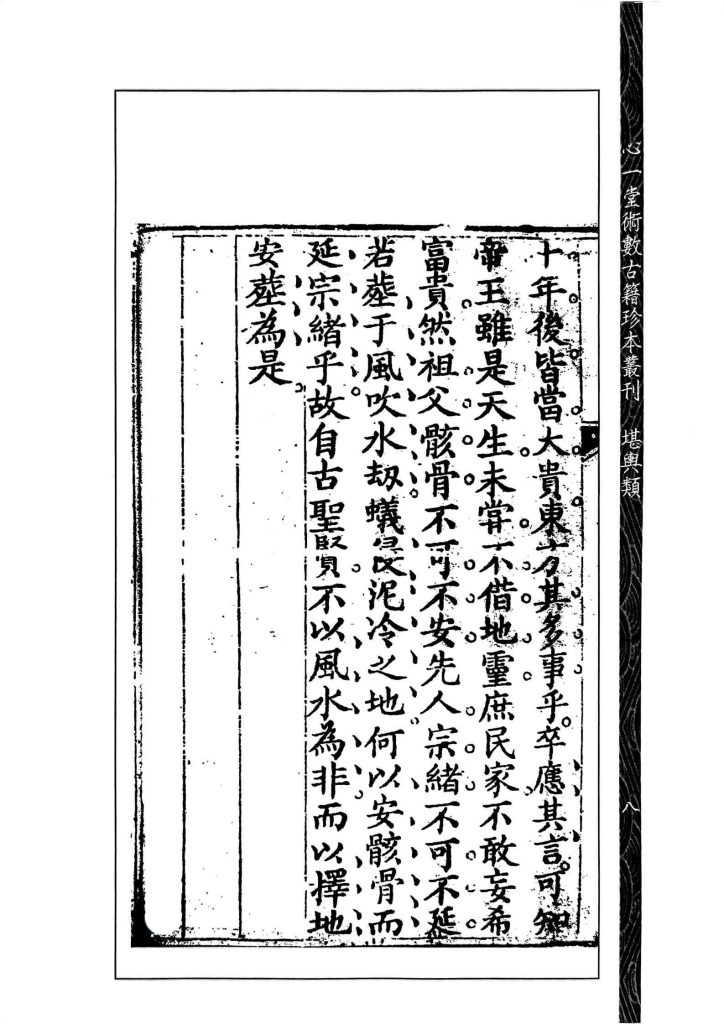 心一堂術數古籍珍本叢刊 堪輿類
八
十年後皆當大貴東方其多事乎卒應其言可知
帝王雖是天生未嘗不借地靈庶民家不敢妄希
富貴然祖父骸骨不可不安先人宗緒不可不延
若塟于風吹水刼蟻侵泥冷之地何以安骸骨而
延宗緒乎故自古聖賢不以風水為非而以擇地
安塟為是